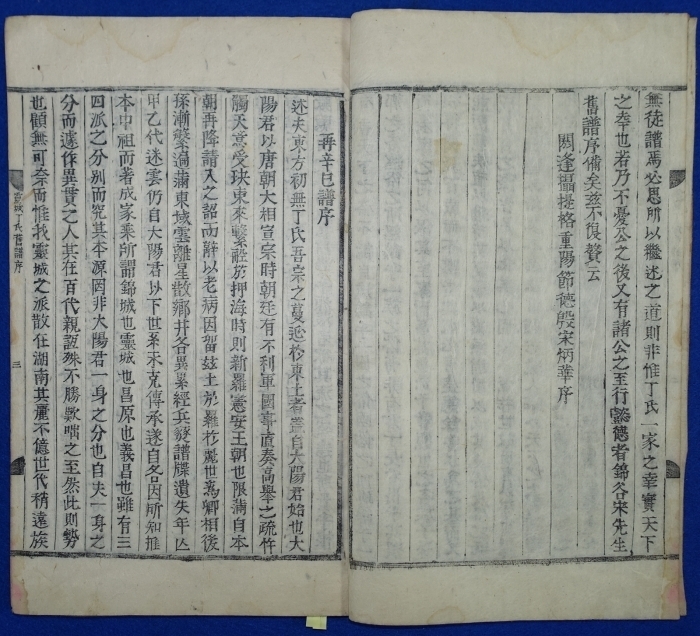 無徒譜焉必思所以繼述之道則非惟丁氏一家之幸實天下
之幸也若乃不憂公之後又有諸公之至行懿德者錦谷宋先生
舊譜序備矣玆不復贅云
閼逢攝提格重陽節德殷宋炳華序
再辛巳譜序
迷夫東方初無丁氏吾宗之蔓延於東土者蓋自大陽君始也大
陽君以唐朝大相宣宗時朝廷有不利軍國事直奏高擧之疏忤
觸天意受玦東來繫舩於押海時則新羅憲安王朝也限滿自本
朝再降請入之詔而辭以老病因留玆土於羅於麗世爲卿相後
孫漸繁過滿東域雲離星散鄕井各異累經兵燹譜牒遺失年亾
甲乙代迷雲仍自大陽君以下世系未克傳承遂自各因所知推
本中祖而著成家乘所謂錦城也靈城也昌原也義昌也雖有三
四派之分别而究其本源因非大陽君一身之分也自夫一身之
分而遽作異貫之人其在百代親誼殊不勝歎咄之至然此則勢
也顧無可奈而惟我靈城之派散在湖南其麗不億世代稍遠族
靈城丁氏舊譜序
三